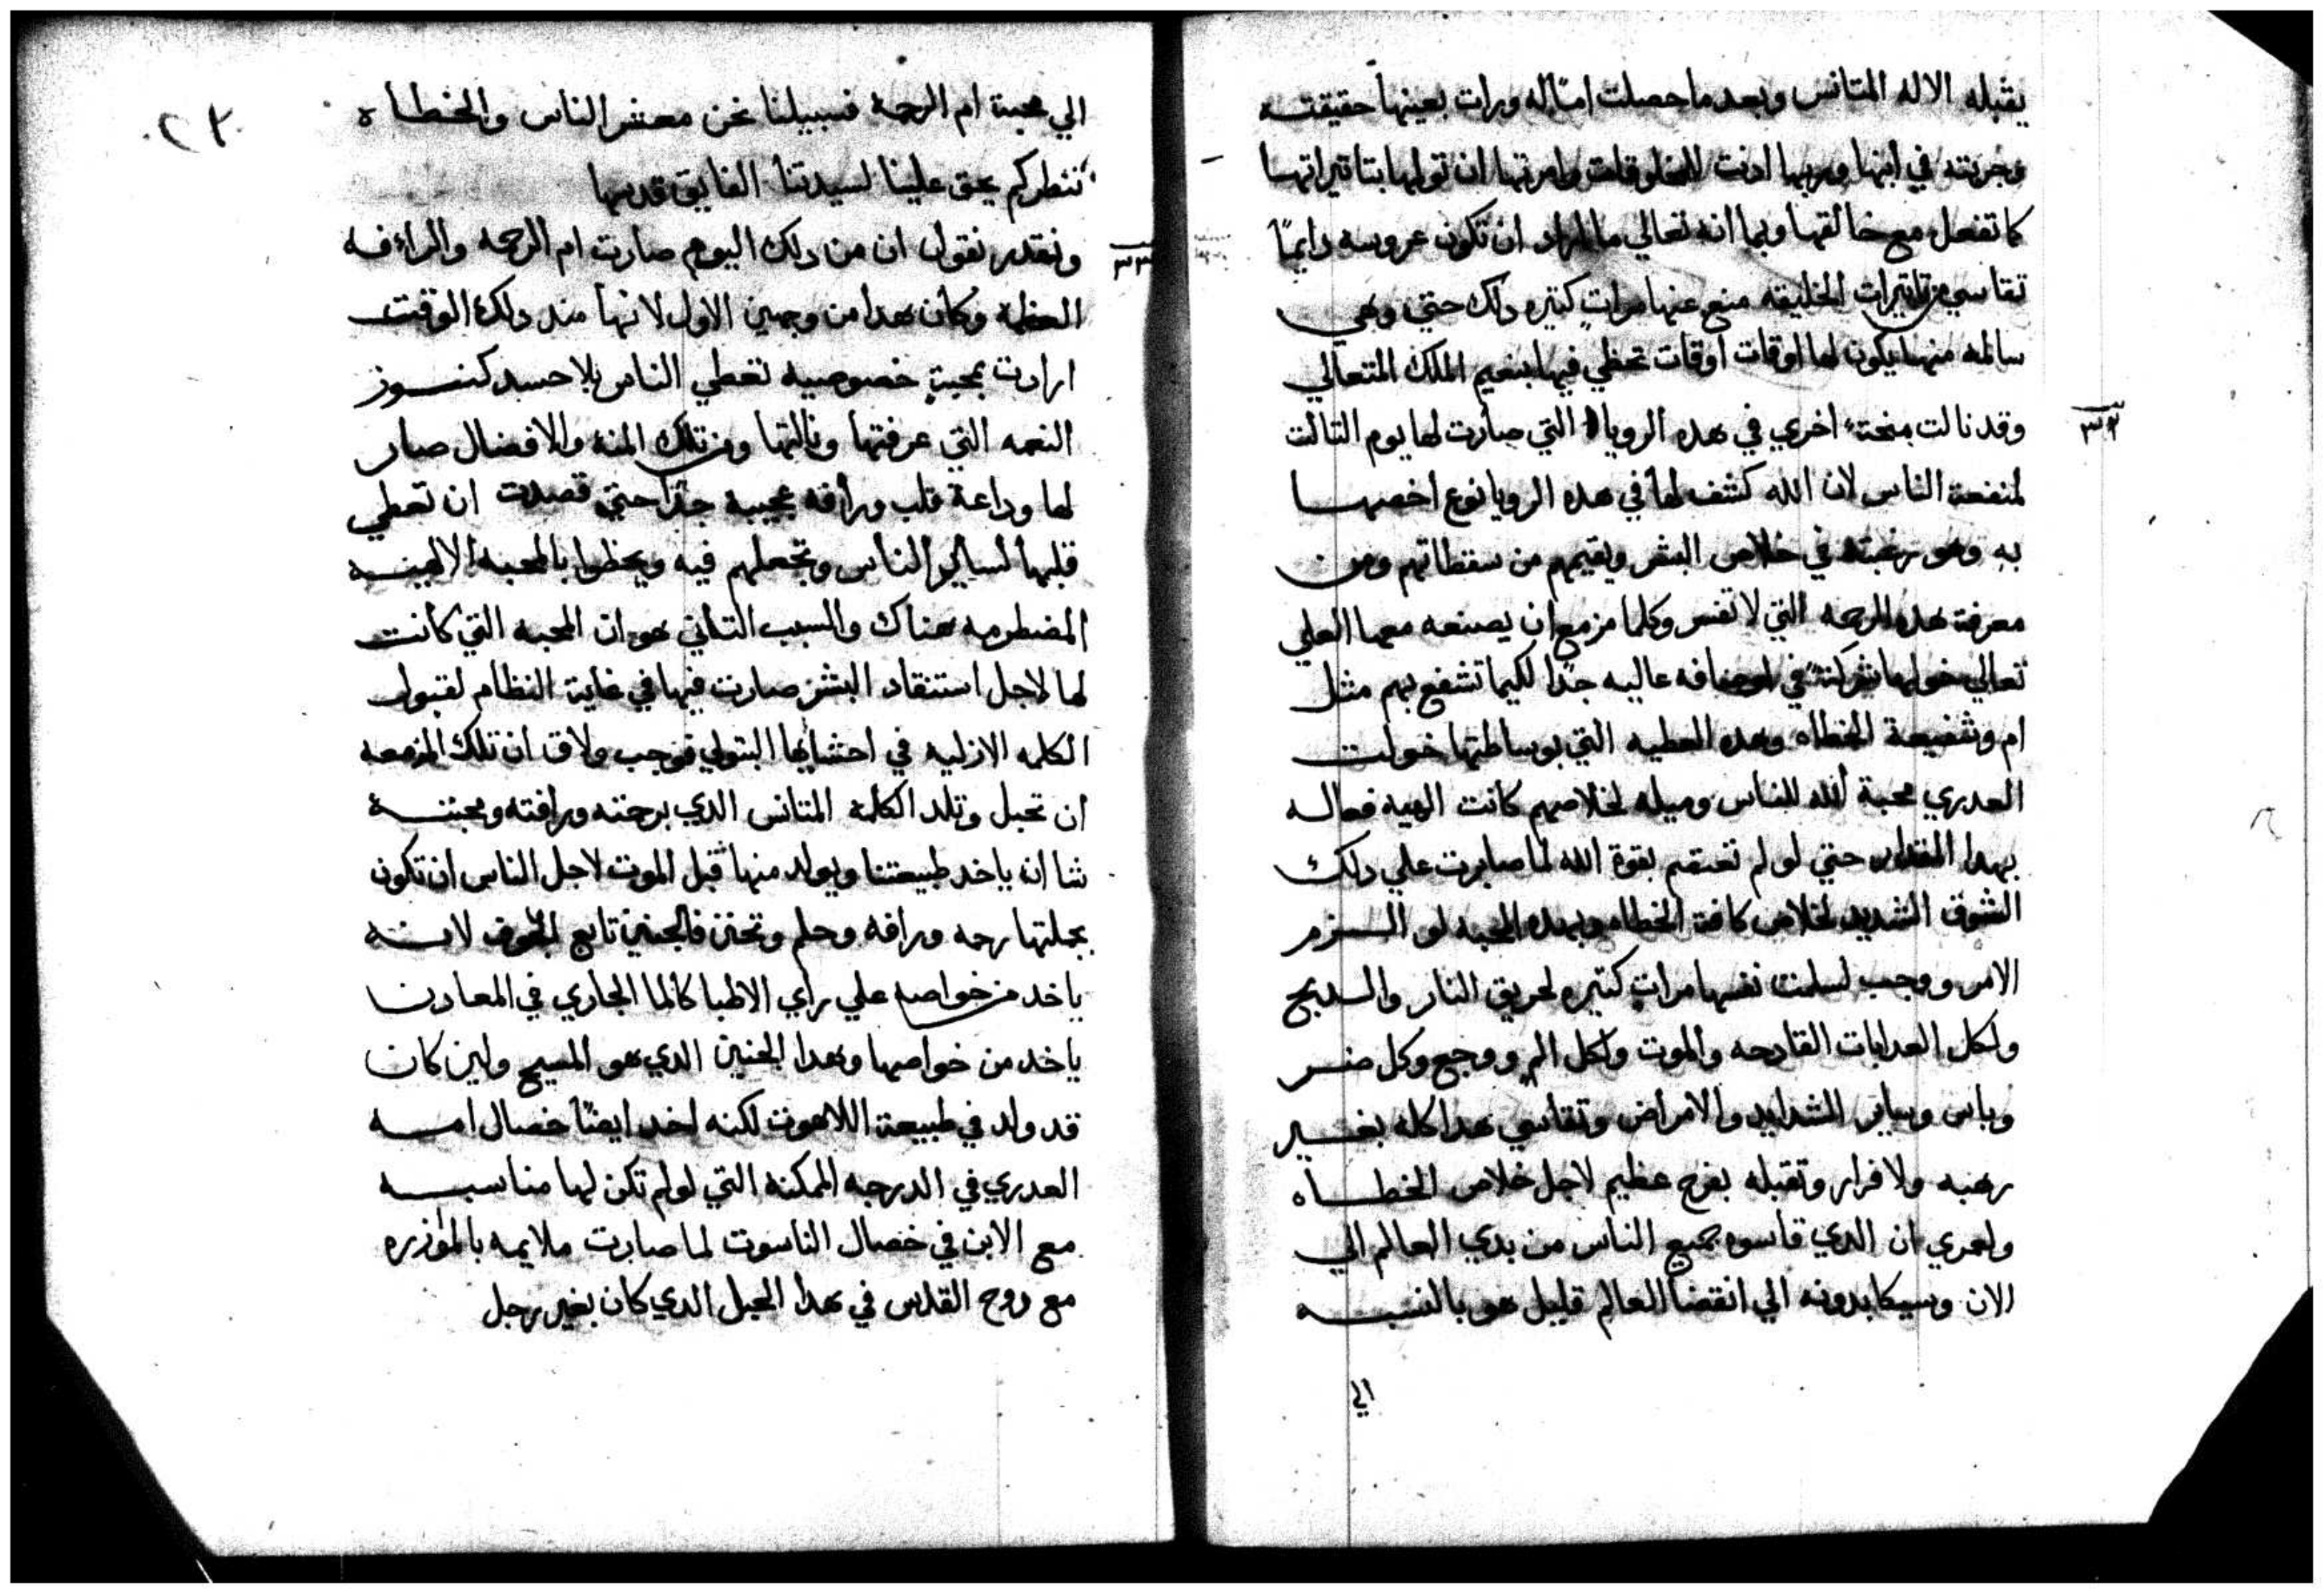 يقبله الاله المتانس وبعد ما حصلت امّاً له ورات بعينها حقيقته
وجربته في ابنها وربها اذنت للمخلوقات وامرتها ان توليها بتاتيراتها
كما تفعل مع خالقها وبما انه تعالي ما اراد ان تكون عروسه دايماً
تقاسي من تاتيرات الخليقه منع عنها مرات كتيره دلك حتي وهي
سالمه منها يكون لها اوقات اوقات تحظي فيها بنعيم الملك المتعالي
٣٢
وقد نالت منحة اخري في هده الرويا التي صارت لها يوم التالت
لمنفعة الناس لان الله كشف لها في هده الرويا نوع اخصها
به وهو رغبته في خلاص البشر ويقيمهم من سقطاتهم ومن
معرفة هده الرحمه التي لا تفسر وكلما مزمع ان يصنعه معها العلي
تعالي خولها شركةً في اوصافه عاليه جدًا لكيما تشفع بهم مثل
ام وشفيعة الخطاه وهده العطيه التي بوساطتها خولت
العدري محبة الله للناس وميله لخلاصهم كانت الهيه فعاله
بهدا المقدار حتي لو لم تعتصم بقوة الله لما صابرت علي دلك
الشوق الشديد لخلاص كافة الخطاه وبهده المحبه لو الـزم
الامر ووجب لسلمت نفسها مرات كتيره لحريق النار والـدبح
ولكل العدابات القادحه والموت ولكل الم ووجع وكل ضر
وباس وساير الشدايد والامراض وتقاسي هدا كله بغير
رهبه ولا فرار وتقبله بفرح عظيم لاجل خلاص الخطاه
ولعمري ان الدي قاسوه جميع الناس من بدي العالم الي
الان وسيكابدونه الي انقضا العالم قليل هو بالنسبه
الي
الي محبة ام الرحمة فسبيلنا نحن معشر الناس والخطاه
ننظركم يحق علينا لسيدتنا الفايق قدرها
٣٣
ونقدر نقول ان من دلك اليوم صارت ام الرحمه والراءفه
العظيمه وكان هدا من وجهين الاول لانها مند دلك الوقت
ارادت بمحبةٍ خصوصيه تعطي الناس بلا حسد كنوز
النعمه التي عرفتها ونالتها ومن تلك المنه والافضال صار
لها وداعة قلب ورأفه عجيبة جدًا حتي قصدت ان تعطي
قلبها لساير الناس وتجعلهم فيه ويحظوا بالمحبه الالهيه
المضطرمه هناك والسبب التاني هو ان المحبه التي كانت
لها لاجل استنقاد البشر صارت فيها في غاية النظام لقبول
الكلمه الازليه في احشايها البتولي فوجب ولاق ان تلك المزمعه
ان تحبل وتلد الكلمة المتانس الدي برحمته ورافته ومحبته
شا ان ياخد طبيعتنا ويولد منها قبل الموت لاجل الناس ان تكون
بجملتها رحمه ورافه وحلم وتحنن فالجنين تابع الجوف لانه
ياخد من خواصه علي راي الاطبا كالما الجاري في المعادن
ياخد من خواصها وهدا الجنين الدي هو المسيح ولين كان
قد ولد في طبيعة اللاهوت لكنه اخد ايضًا خصال امه
العدري في الدرجه الممكنه التي لو لم تكن لها مناسبه
مع الابن في خصال الناسوت لما صارت ملايمه بالموازره
مع روح القدس في هدا الحبل الدي كان بغير رجل